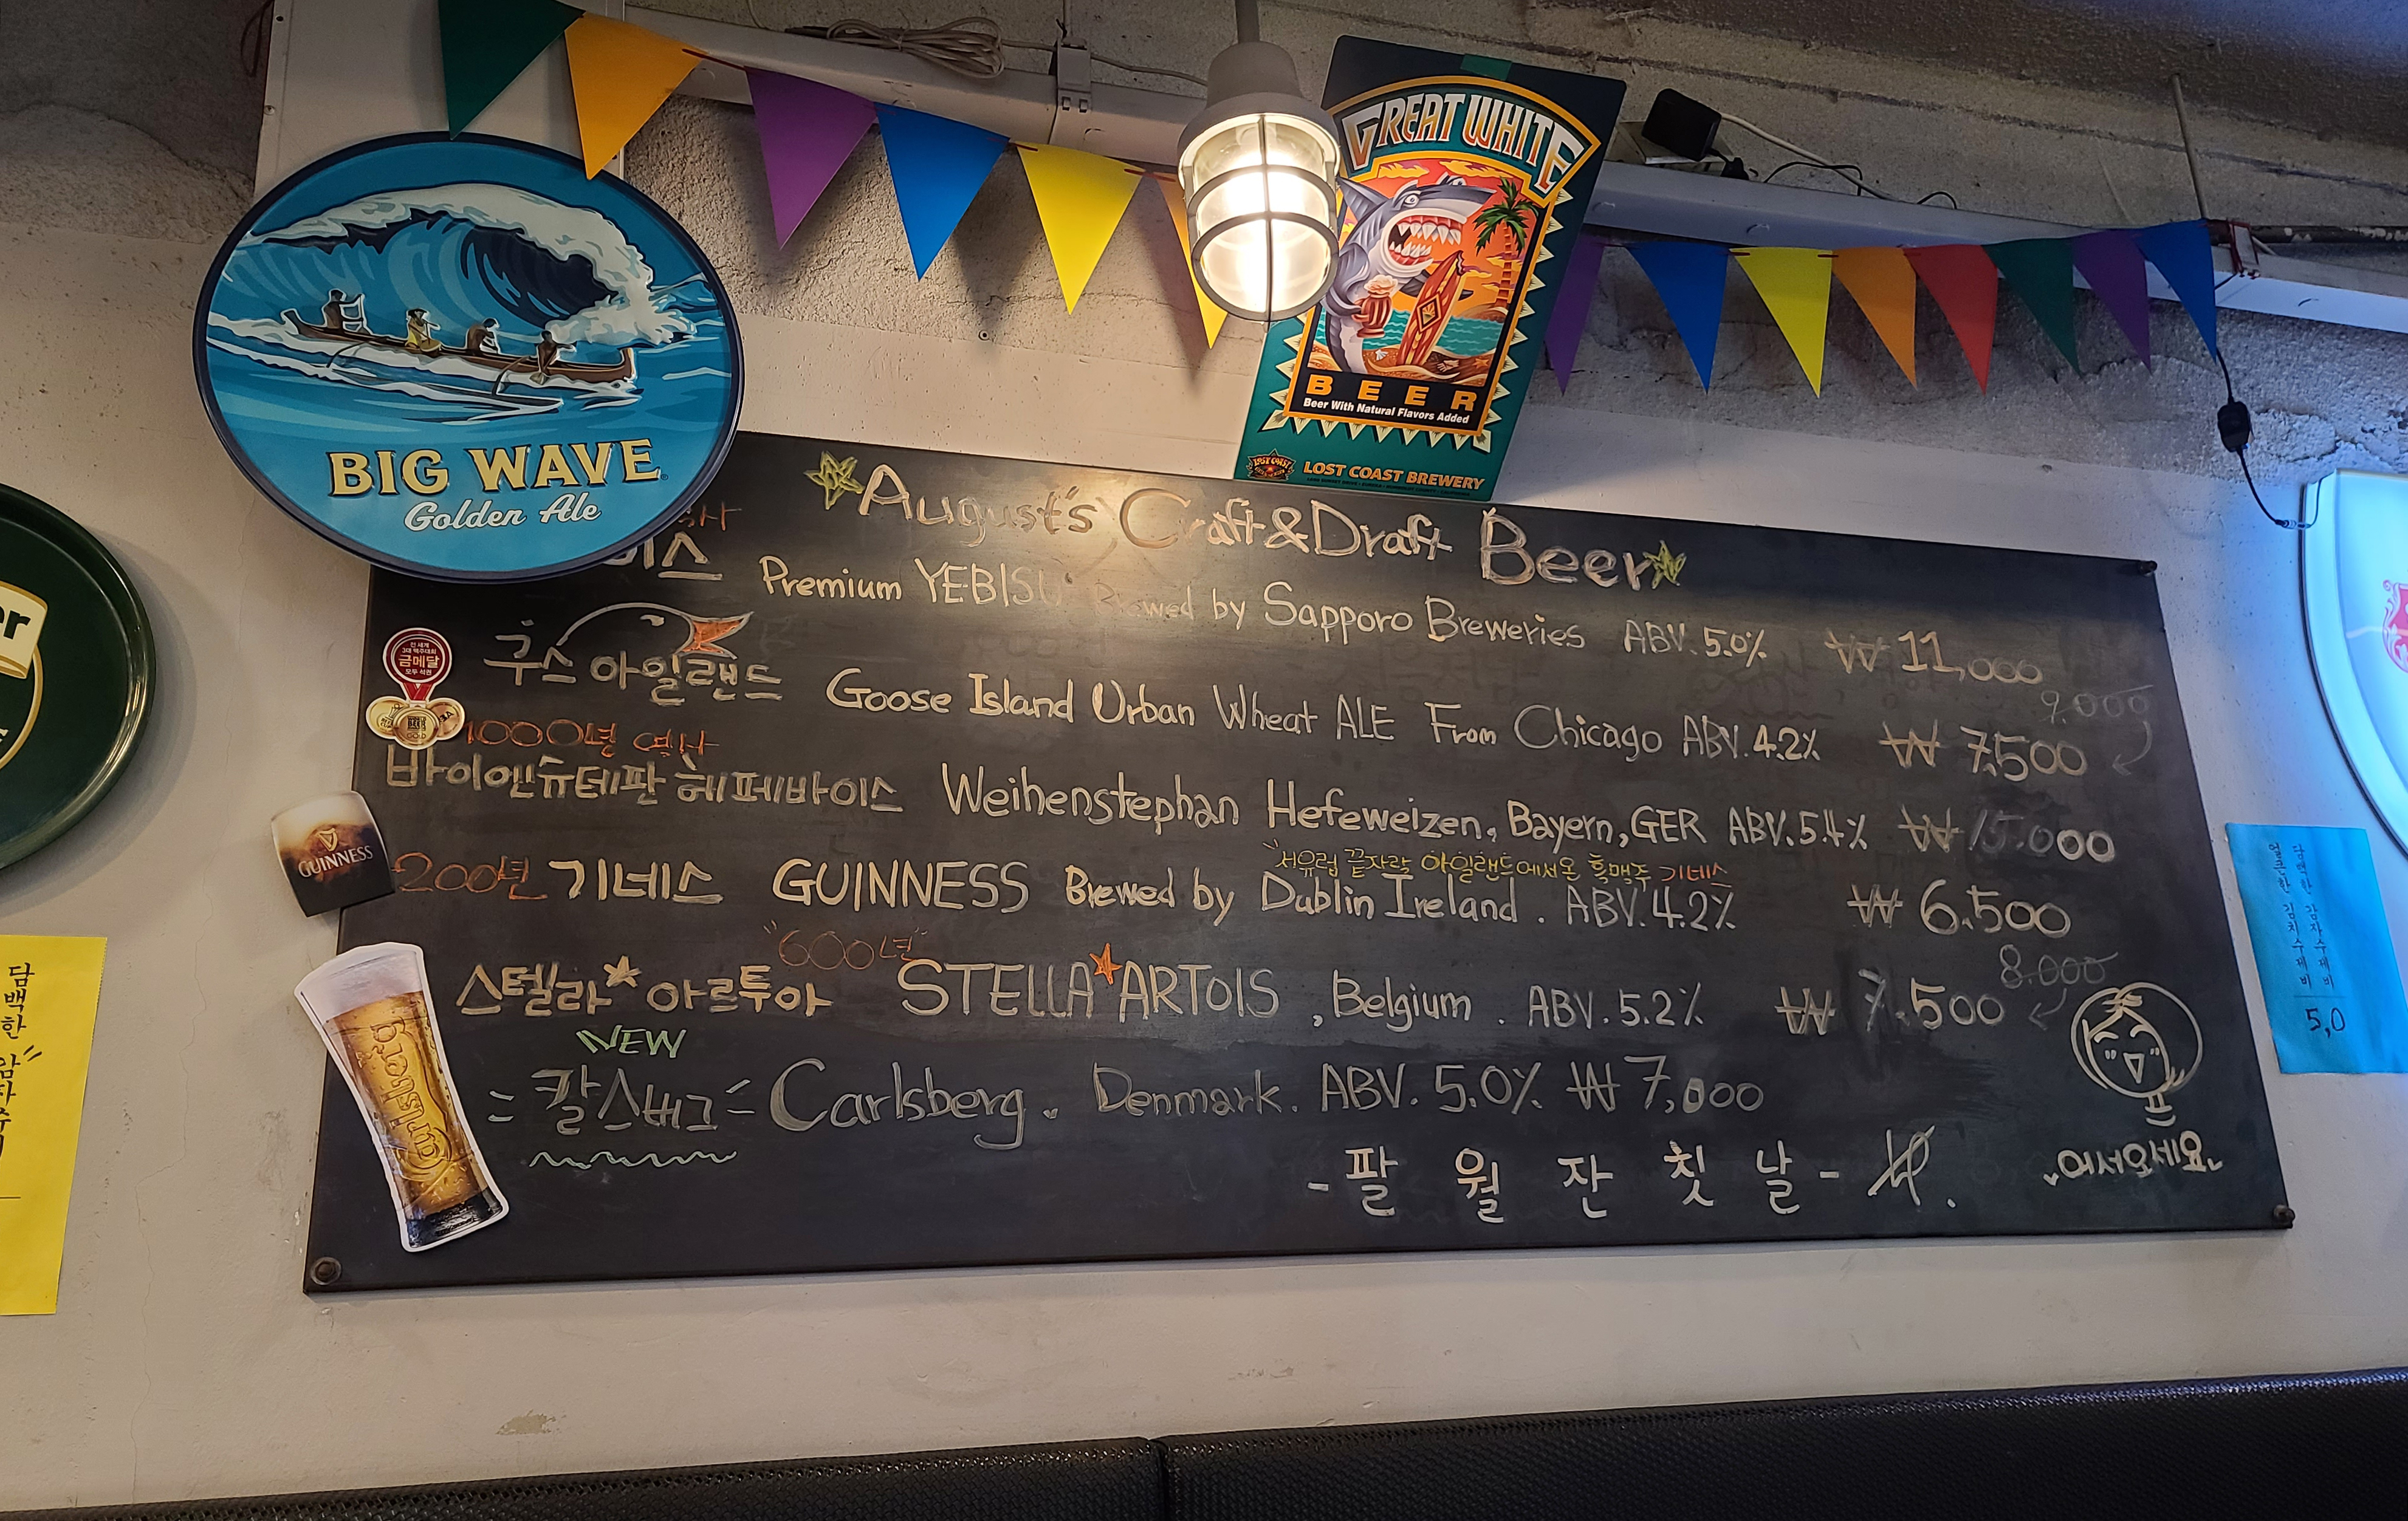 BIG WAVE
Golden Ale
GREAT WHITE
BEER
Beer With Natural Flavors Added
LOST COAST BREWERY
August's Craft & Draft Beer
Premium YEBISU Brewed by Sapporo Breweries ABV. 5.0% ₩ 11,000
전 세계
3대 맥주대회
금메달
모두 석권
구스 아일랜드 Goose Island Urban Wheat ALE From Chicago ABV. 4.2% ₩ 7.500
9.000
1000년 역사
바이엔슈테판 헤페바이스 Weihenstephan Hefeweizen, Bayern, GER ABV. 5.4% ₩ 15.000
"서유럽 끝자락 아일랜드에서온 흑맥주 기네스
GUINNESS
200년 기네스 GUINNESS Brewed by Dublin Ireland. ABV. 4.2% ₩ 6.500
"600년"
8.000
스텔라★아르투아 STELLA★ARTOIS, Belgium. ABV. 5.2% ₩ 7.500
NEW
= 칼스버그 = Carlsberg. Denmark. ABV. 5.0% ₩ 7,000
- 팔 월 잔 칫 날 -
어서오세요
담백한 감자수
담백한 감자수제비
얼큰한 김치수제비
5,0